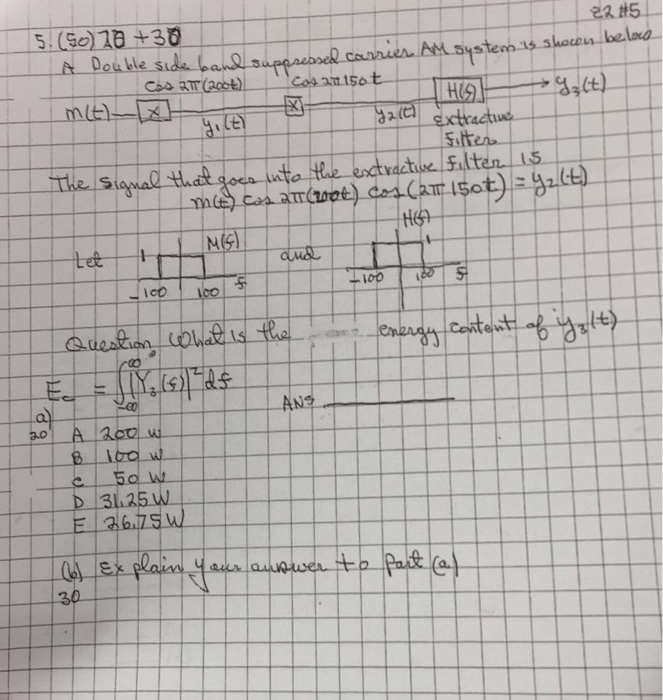 22 #5
5. (50) 20 + 30
A Double side band suppressed carrier AM system is shown below
cos 2π(200t) cos 2π150t
m(t) X X H(f) y3(t)
y1(t) y2(t) extractive
filter
The signal that goes into the extractive filter is
m(t) cos 2π(200t) cos(2π150t) = y2(t)
H(f)
Let 1 M(f) and 1
-100 100 f -100 100 f
Question What is the energy content of y3(t)
E = ∫|Y3(f)|² df
∞
-∞
ANS
a)
20 A 200 w
B 100 w
C 50 W
D 31.25 W
E 26.75 W
(b) Explain your answer to Part (a)
30